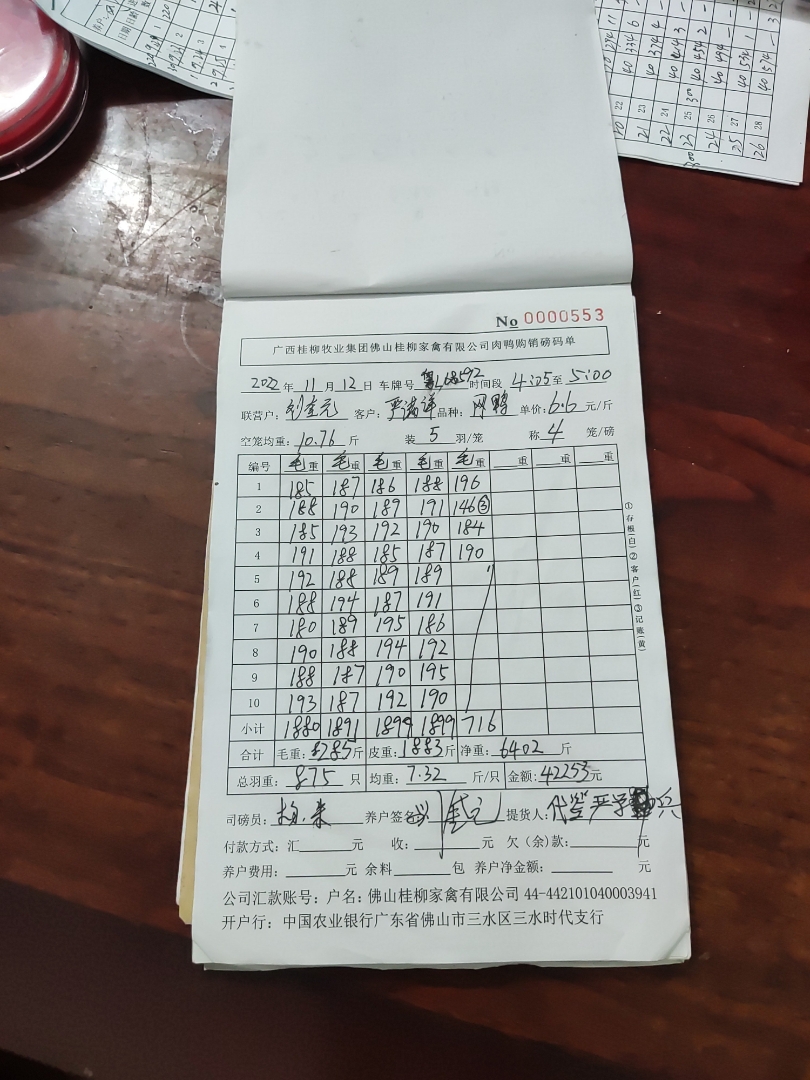 No 0000553
广西桂柳牧业集团佛山桂柳家禽有限公司肉鸭购销磅码单
2022年11月12日 车牌号 时间段 4:05至5:00
联营户: 客户: 品种: 单价:6.6元/斤
空笼均重:10.76斤 装5羽/笼 称4笼/磅
编号 毛重 毛重 毛重 毛重 毛重 重 重 重
1 185 187 186 188 196
2 188 190 189 191 146③
3 185 193 192 190 184
4 191 188 185 187 190
5 192 188 189 189
6 188 194 187 191
7 180 189 195 186
8 190 188 194 192
9 188 187 190 195
10 193 187 192 190
小计 1880 1891 1899 1899 716
合计 毛重:8285斤 皮重:1883斤 净重:6402斤
总羽重:875只 均重:7.32斤/只 金额:42253元
司磅员: 养户签名: 提货人:
付款方式:汇 元 收: 元 欠(余)款: 元
养户费用: 元 余料 包 养户净金额: 元
公司汇款账号:户名:佛山桂柳家禽有限公司 44-442101040003941
开户行:中国农业银行广东省佛山市三水区三水时代支行
①存根(白)②客户(红)③记账(黄)